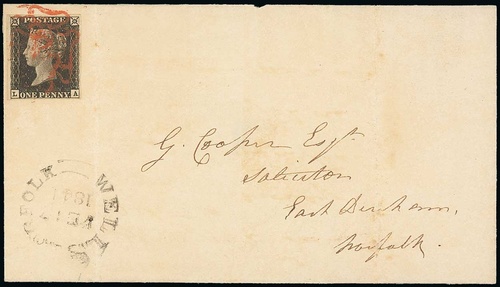 POSTAGE
L A
ONE PENNY
G. Cooper Esqr.
Solicitor
East Dereham,
Norfolk.
WELLS
1841